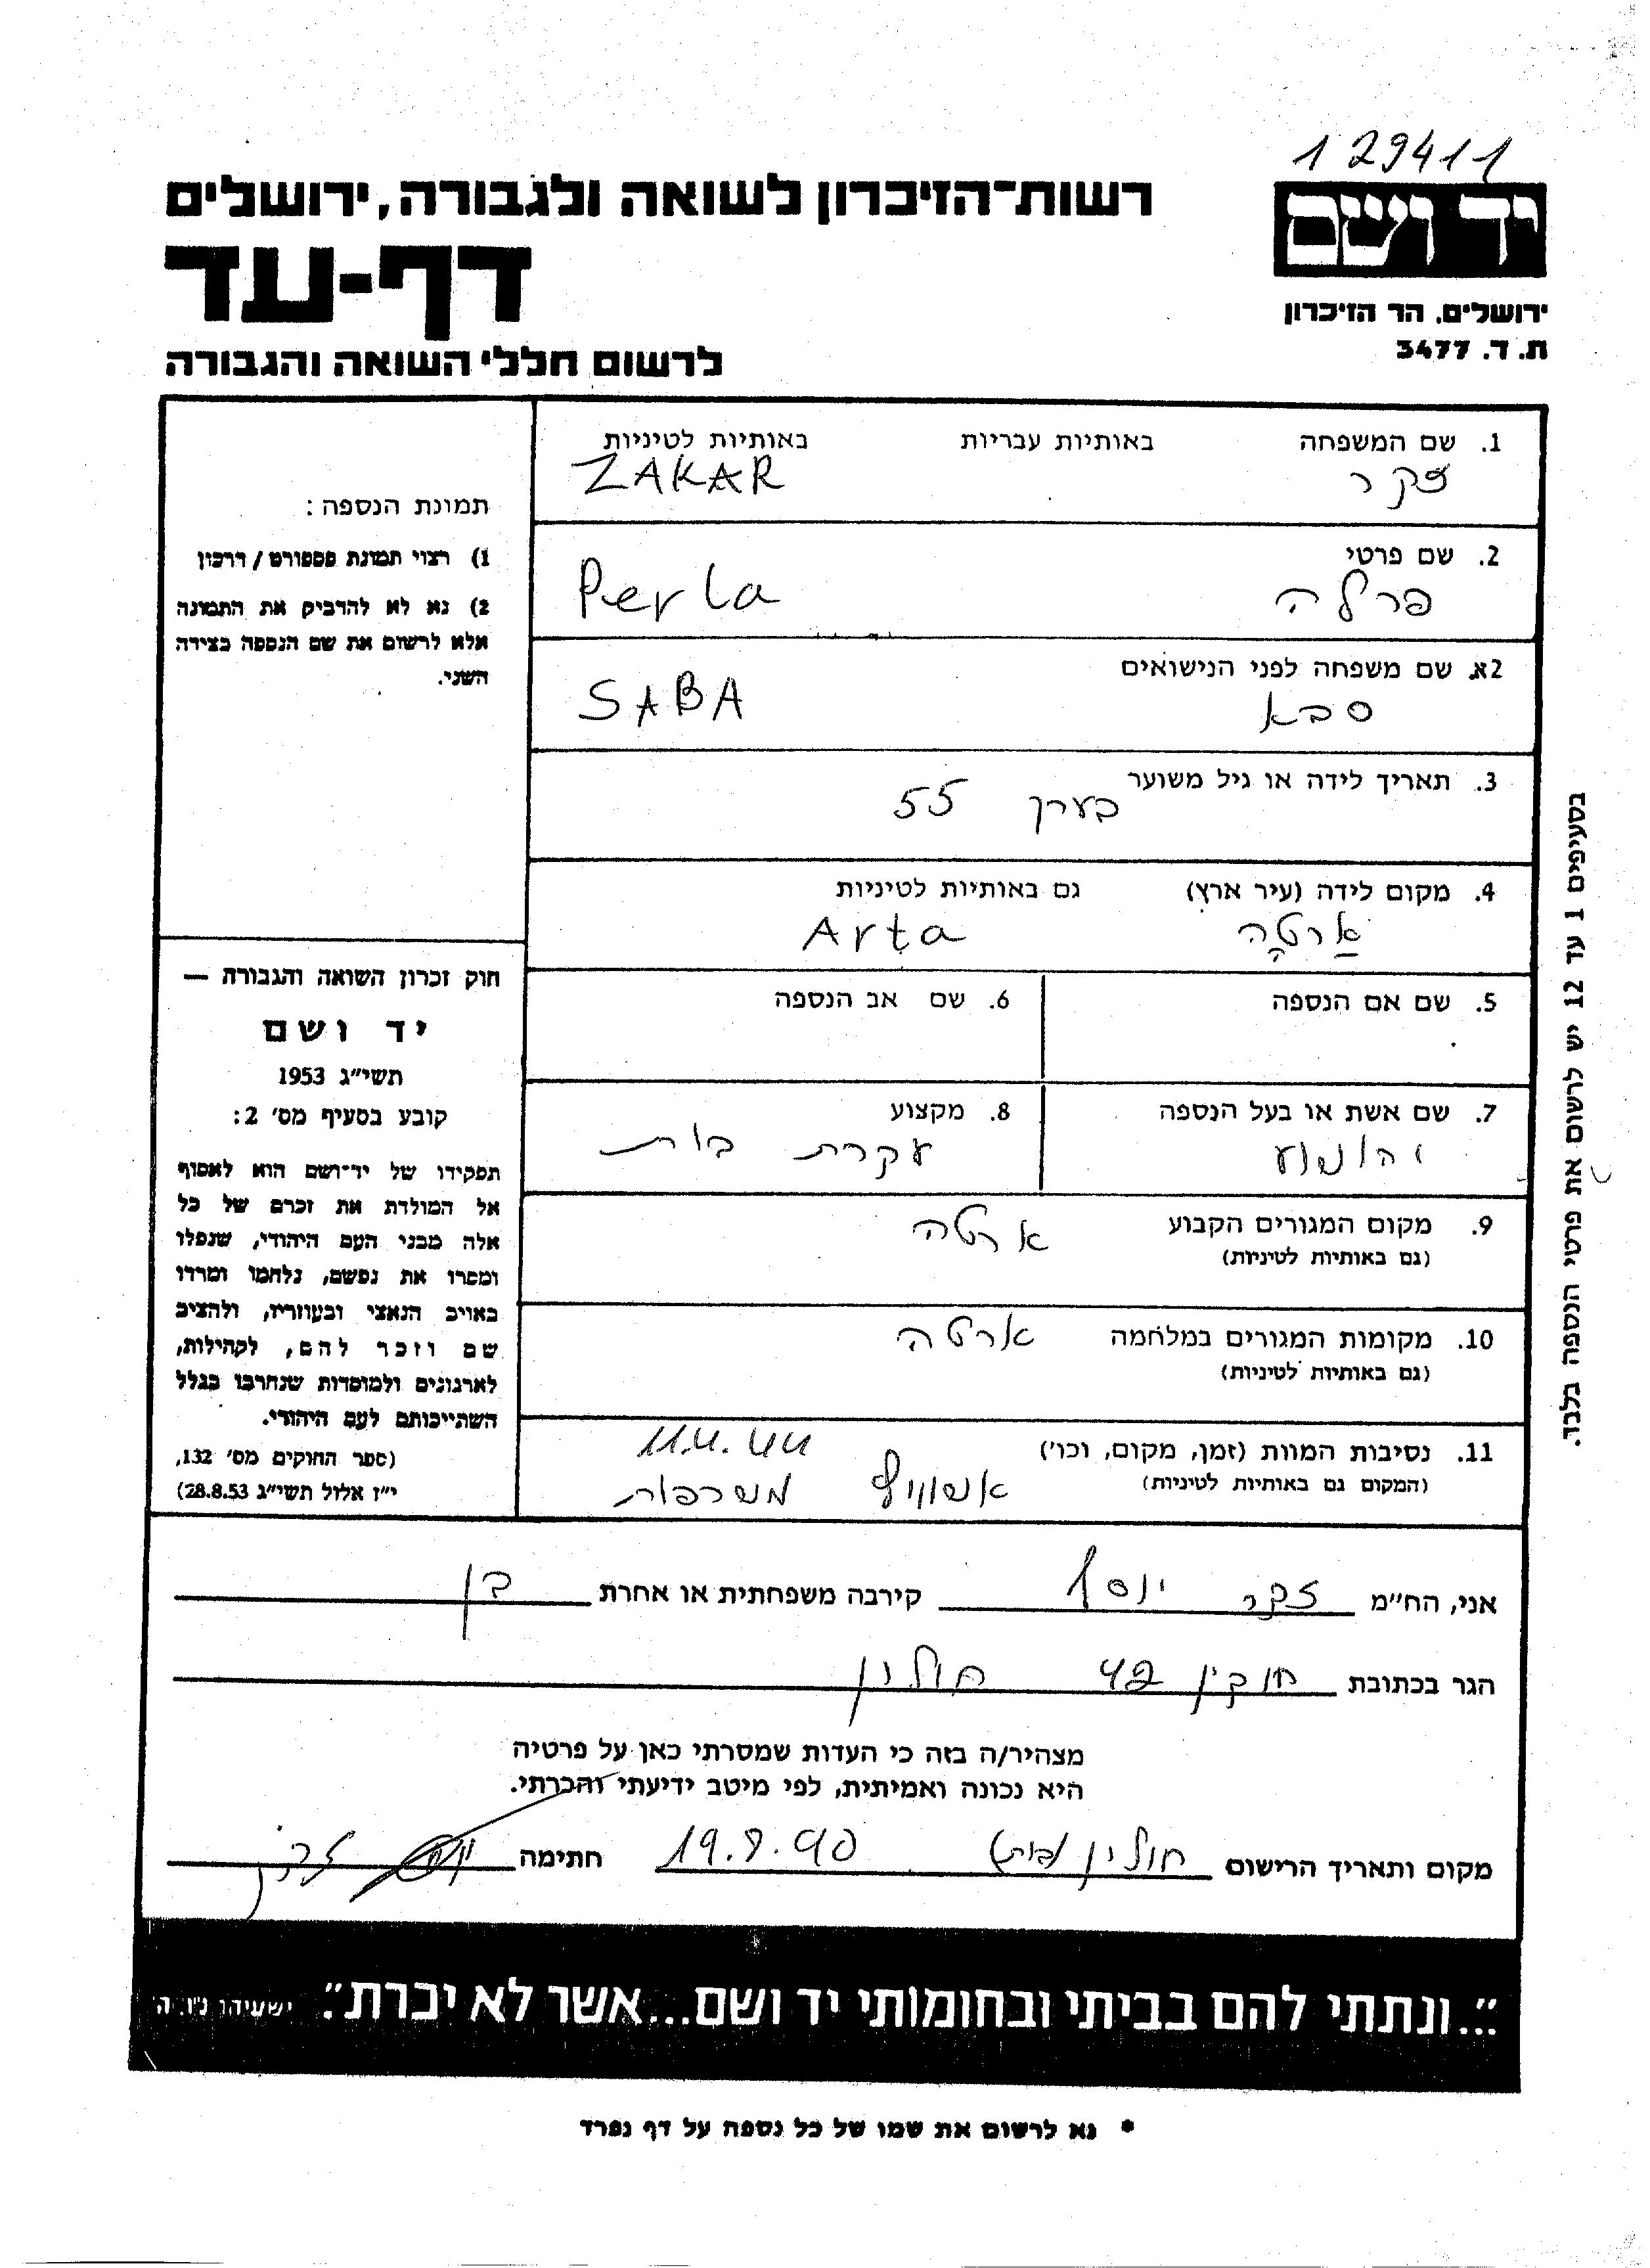 129411
יד ושם
ירושלים, הר הזיכרון
ת. ד. 3477
רשות־הזיכרון לשואה ולגבורה, ירושלים
דף-עד
לרשום חללי השואה והגבורה
1. שם המשפחה באותיות עבריות באותיות לטיניות
זקר ZAKAR
2. שם פרטי
פרלה Perla
2א. שם משפחה לפני הנישואים
סבא SABA
3. תאריך לידה או גיל משוער
בערך 55
4. מקום לידה (עיר ארץ) גם באותיות לטיניות
אַרטָה Arta
5. שם אם הנספה
6. שם אב הנספה
7. שם אשת או בעל הנספה
יהושוע
8. מקצוע
עקרת בית
9. מקום המגורים הקבוע ארטה
(גם באותיות לטיניות)
10. מקומות המגורים במלחמה ארטה
(גם באותיות לטיניות)
11. נסיבות המוות (זמן, מקום, וכו') 11.4.44
(המקום גם באותיות לטיניות) אשוויץ משרפות
תמונת הנספה:
1) רצוי תמונת פספורט / דרכון
2) נא לא להדביק את התמונה
אלא לרשום את שם הנספה בצידה
השני.
חוק זכרון השואה והגבורה —
יד ושם
תשי״ג 1953
קובע בסעיף מס' 2:
תפקידו של יד־ושם הוא לאסוף
אל המולדת את זכרם של כל
אלה מבני העם היהודי, שנפלו
ומסרו את נפשם, נלחמו ומרדו
באויב הנאצי ובעוזריו, ולהציב
שם וזכר להם, לקהילות,
לארגונים ולמוסדות שנחרבו בגלל
השתייכותם לעם היהודי.
(ספר החוקים מס' 132,
י״ז אלול תשי״ג 28.8.53)
בסעיפים 1 עד 12 יש לרשום את פרטי הנספה בלבד.
אני, הח״מ זקר יוסף קירבה משפחתית או אחרת בן
הגר בכתובת חנקין 42 חולון
מצהיר/ה בזה כי העדות שמסרתי כאן על פרטיה
היא נכונה ואמיתית, לפי מיטב ידיעתי והכרתי.
מקום ותאריך הרישום חולון 19.8.90 חתימה
״...ונתתי להם בביתי ובחומותי יד ושם...אשר לא יכרת״. ישעיהו נ״ו, ה'
* נא לרשום את שמו של כל נספה על דף נפרד